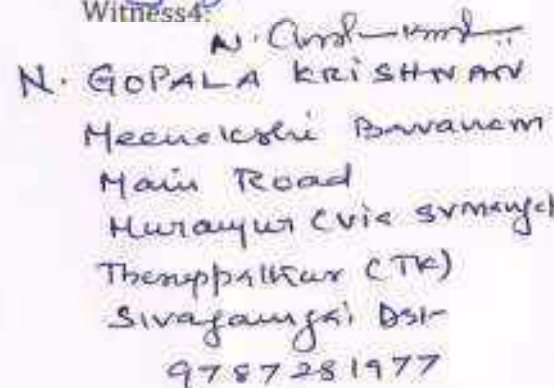 Witness4:
N. GOPALA KRISHNAN
Meenakshi Bavanam
Main Road
Murayur (via
(TK)
Sivagangai Dst
9787281977